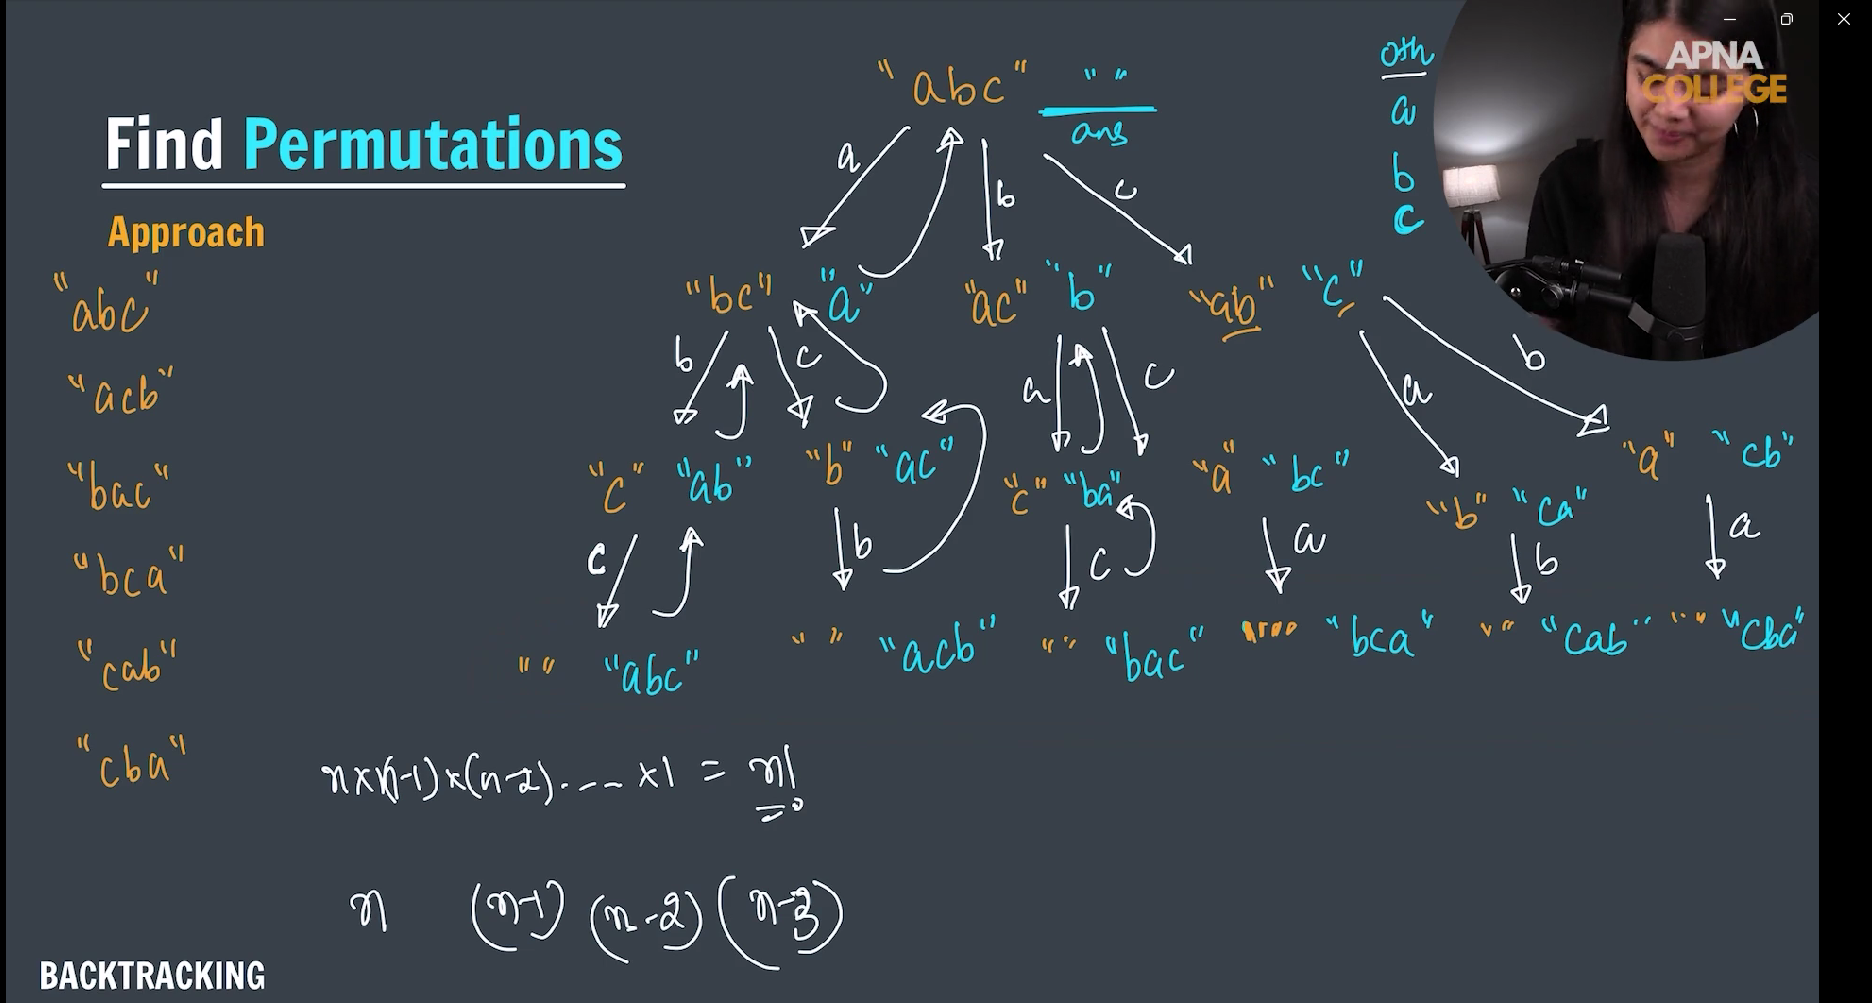 APNA
COLLEGE
Find Permutations
Approach
"abc"
"acb"
"bac"
"bca"
"cab"
"cba"
"abc" " "
ans
0th
a
b
c
a b c
"bc" "a" "ac" "b" "ab" "c"
b c a c a b
"c" "ab" "b" "ac" "c" "ba" "a" "bc" "b" "ca" "a" "cb"
c b c a b a
" " "abc" " " "acb" " " "bac" "bca" " " "cab" " " "cba"
n×(n-1)×(n-2)....×1 = n!
n (n-1) (n-2) (n-3)
BACKTRACKING